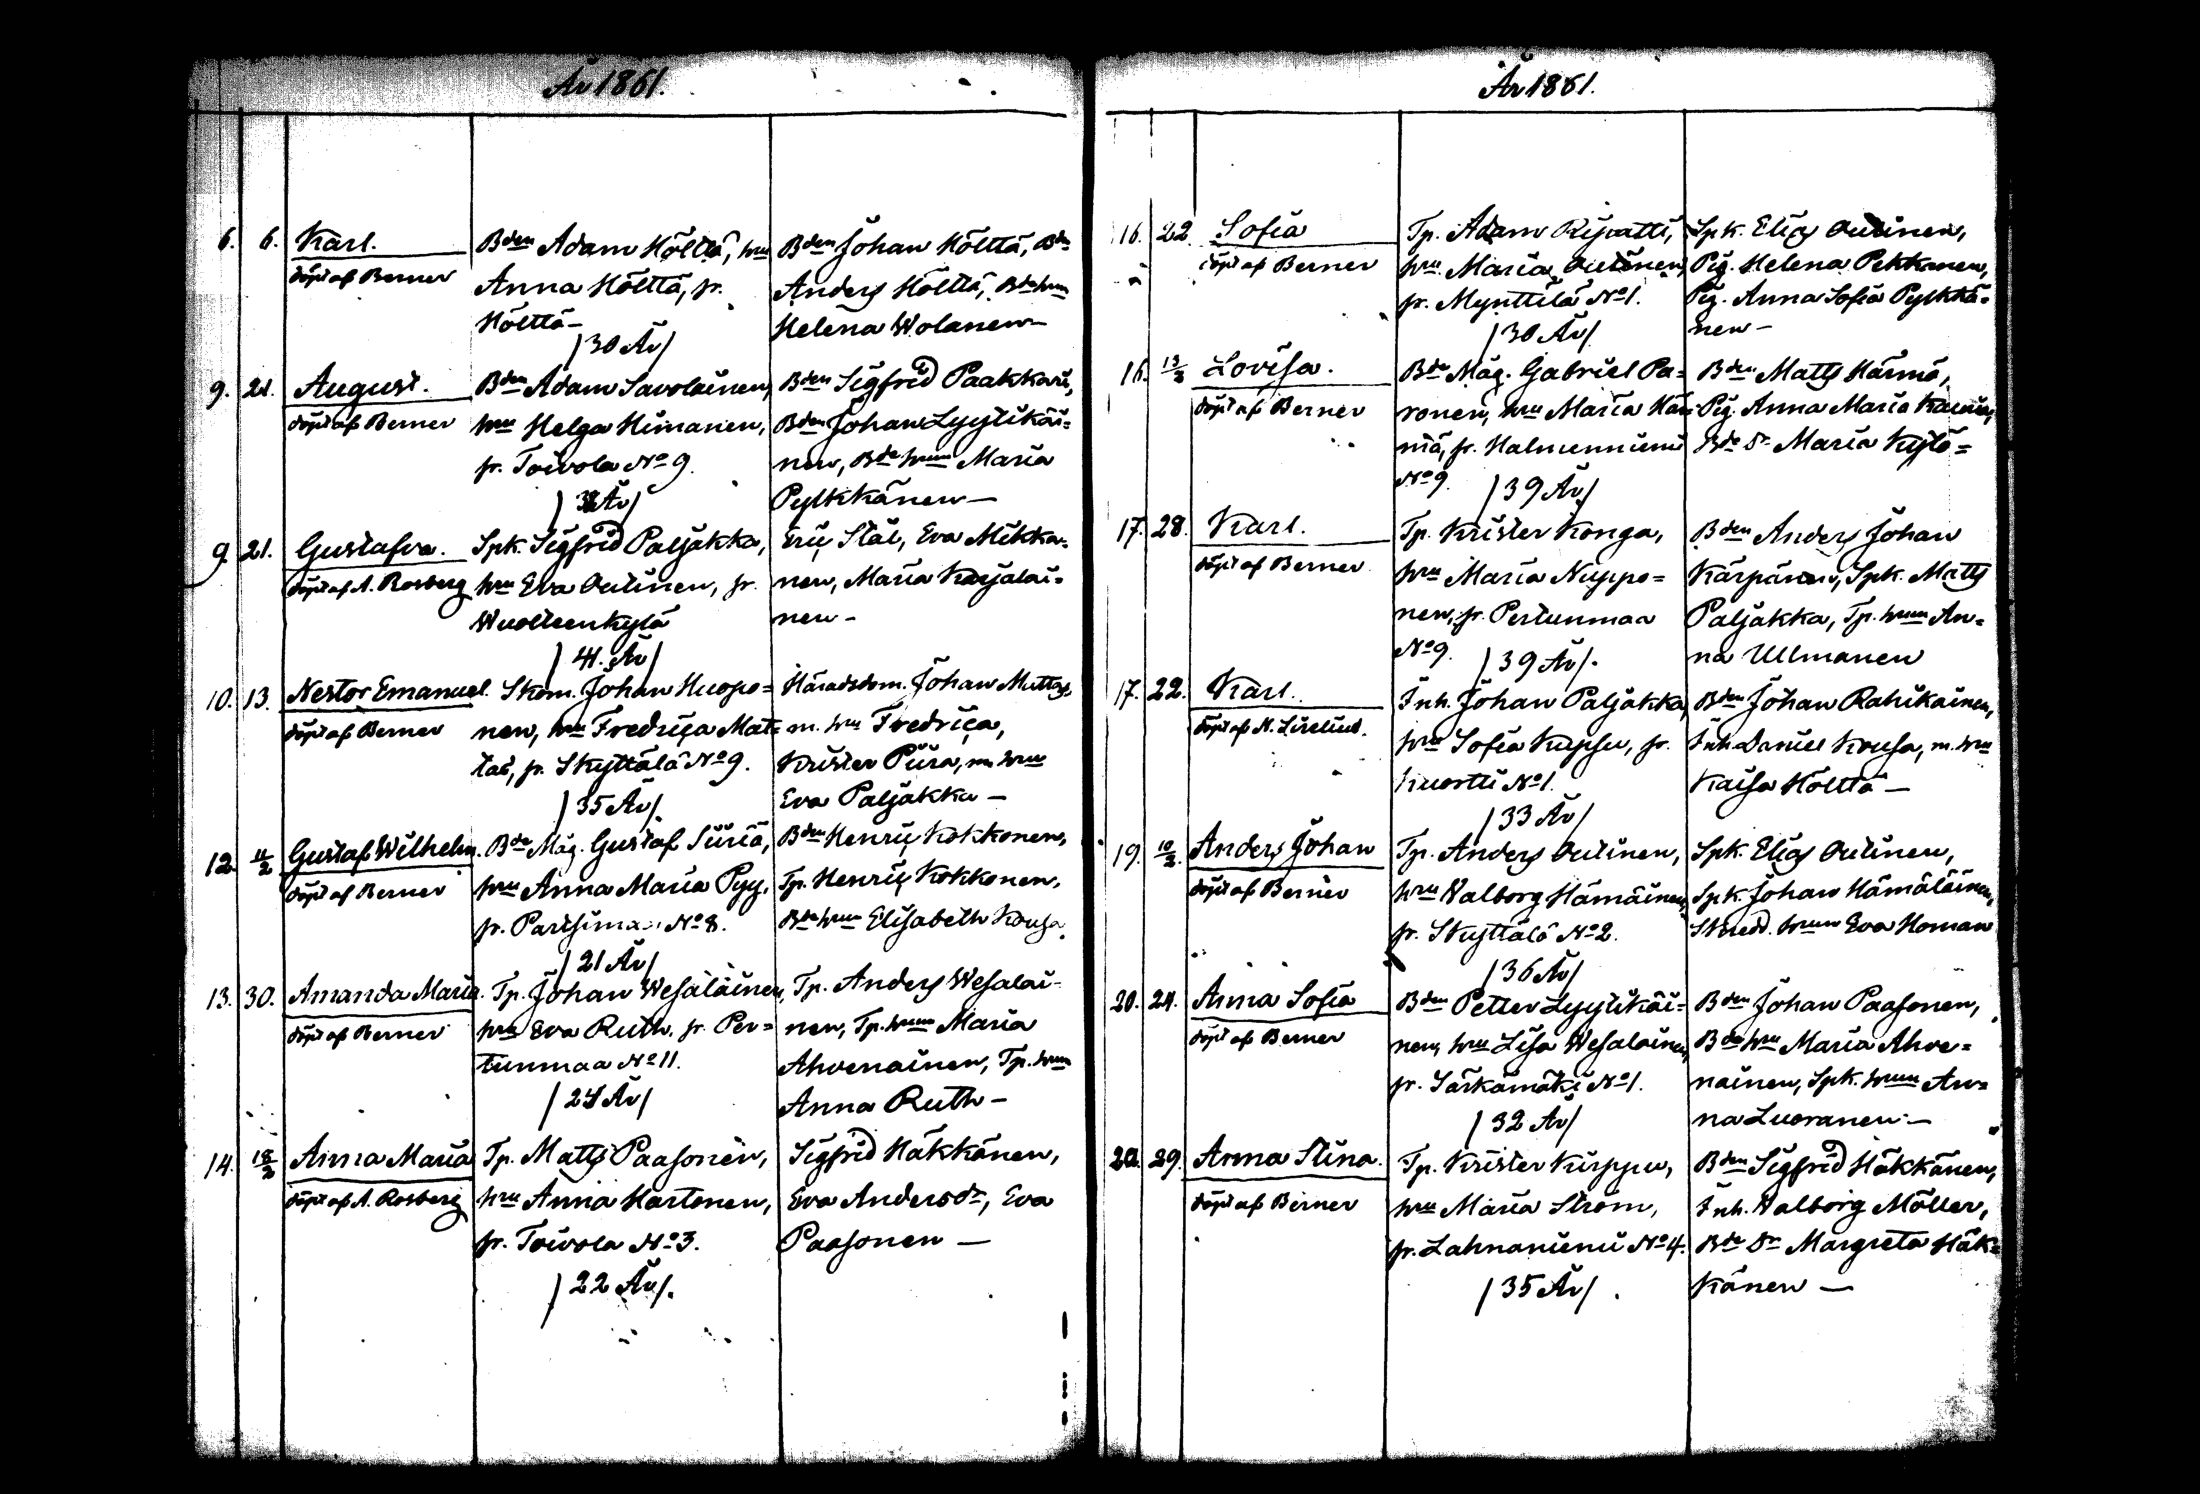 År 1861.
6. 6. Karl.
döpt af Berner
Bden Adam Hölttä, hru
Anna Hölttä, fr.
Hölttä –
/30 År/
Bden Johan Hölttä, Bde
Anders Hölttä, Bde hru
Helena Wolanen –
9. 21. August.
döpt af Berner
Bden Adam Savolainen,
hru Helga Himanen,
fr. Toivola No 9.
Bden Sigfrid Paakkari,
Bden Johan Lyytikäi=
nen, Bde hrun Maria
Pylkkänen –
9. 21. Gustafva.
döpt af A. Rosberg
Spk. Sigfrid Paljakka,
hru Eva Outinen, fr.
Wuolteenkylä
/41. År/
Eric Stål, Eva Mikka=
nen, Maria Karjalai=
nen –
10. 13. Nestor Emanuel.
döpt af Berner
Skom. Johan Huopo=
nen, hru Fredrica Mat=
tas, fr. Skyttälä No 9.
/35 År/.
Häradsdom. Johan Mattas,
m. hru Fredrica,
Krister Piira, m hru
Eva Paljakka –
12. 11/2 Gustaf Wilhelm.
döpt af Berner
Bde Måg. Gustaf Siiriä,
hru Anna Maria Pyy,
fr. No 8.
/21 År/
Bden Henric Kokkonen,
Tp. Henric Kokkonen,
Bde hrun Elisabeth Kousa.
13. 30. Amanda Maria.
döpt af Berner
Tp. Johan Wesalainen,
hru Eva Ruth, fr. Per=
tunmaa No 11.
/24 År/
Tp. Anders Wesalai=
nen, Tp. hrun Maria
Ahvenainen, Tp. hrun
Anna Ruth –
14. 18/2 Anna Maria
döpt af A. Rosberg
Tp. Matts Paasonen,
hru Anna Hartonen,
fr. Toivola No 3.
/22 År/.
Sigfrid Häkkänen,
Eva Andersdr, Eva
Paasonen –
År 1861.
16. 22 Sofia
döpt af Berner
Tp. Adam Ripatti,
hru Maria Outinen,
fr. Mynttilä No 1.
/30 År/
Spk. Elias Outinen,
Pig. Helena Pekkanen,
Pig. Anna Sofia Pylkkä=
nen –
16. 13/2 Lovisa.
döpt af Berner
Bde Måg. Gabriel Pa=
ronen, hru Maria Hän=
niä, fr. Halmenniemi
No 9. /39 År/
Bden Matts
Pig. Anna Maria
Bde dr Maria Kylö=
17. 28. Karl.
döpt af Berner
Tp. Krister Konga,
hru Maria Nuppo=
nen, fr. Pertunmaa
No 9. /39 År/.
Bden Anders Johan
Kärpänen, Spk. Matts
Paljakka, Tp. hrun An=
na Ullmanen
17. 22. Karl.
döpt af N.
Inh. Johan Paljakka,
hru Sofia Kuppu, fr.
Kuortti No 1.
/33 År/
Bden Johan Rahikainen,
Inh. Daniel Kousa, m. hru
Kaisa Hölttä –
19. 10/2. Anders Johan
döpt af Berner
Tp. Anders Outinen,
hru Walborg Hämäinen,
fr. Skyttälä No 2.
/36 År/
Spk. Elias Outinen,
Spk. Johan Hämäläinen,
hrun Eva Homan
20. 24. Anna Sofia
döpt af Berner
Bden Petter Lyytikäi=
nen, hru Lisa Wesalainen,
fr. Särkämäki No 1.
/32 År/
Bden Johan Paasonen,
Bde hru Maria Ahve=
nainen, Spk. hrun An=
na Luoranen –
20. 29. Anna Stina.
döpt af Berner
Tp. Krister Kuppu,
hru Maria Ström,
fr. Lahnaniemi No 4.
/35 År/.
Bden Sigfrid Häkkänen,
Inh. Walborg Möller,
Bde dr Margreta Häk=
känen –